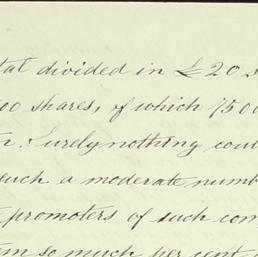 tal divided in £20 s
00 shares, of which 7500
Surely nothing coul
such a moderate numb
promoters of such com
so much per cent